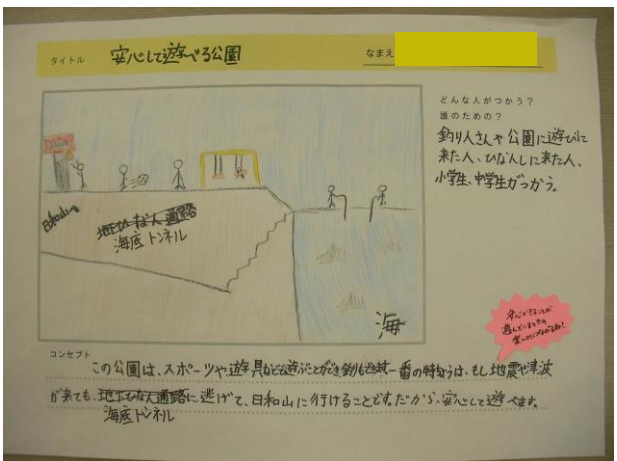 タイトル 安心して遊べる公園
なまえ
どんな人がつかう？
誰のための？
釣り人さんや公園に遊びに
来た人、ひなんしに来た人、
小学生、中学生がつかう。
日和山
地下ひなん通路
海底トンネル
海
安心できることが
コンセプト
この公園は、スポーツや遊具などで遊ぶことができ釣りもできます。一番の特ちょうは、もし地震や津波
が来ても、地下ひなん通路に逃げて、日和山に行けることです。だから、安心して遊べます。
海底トンネル